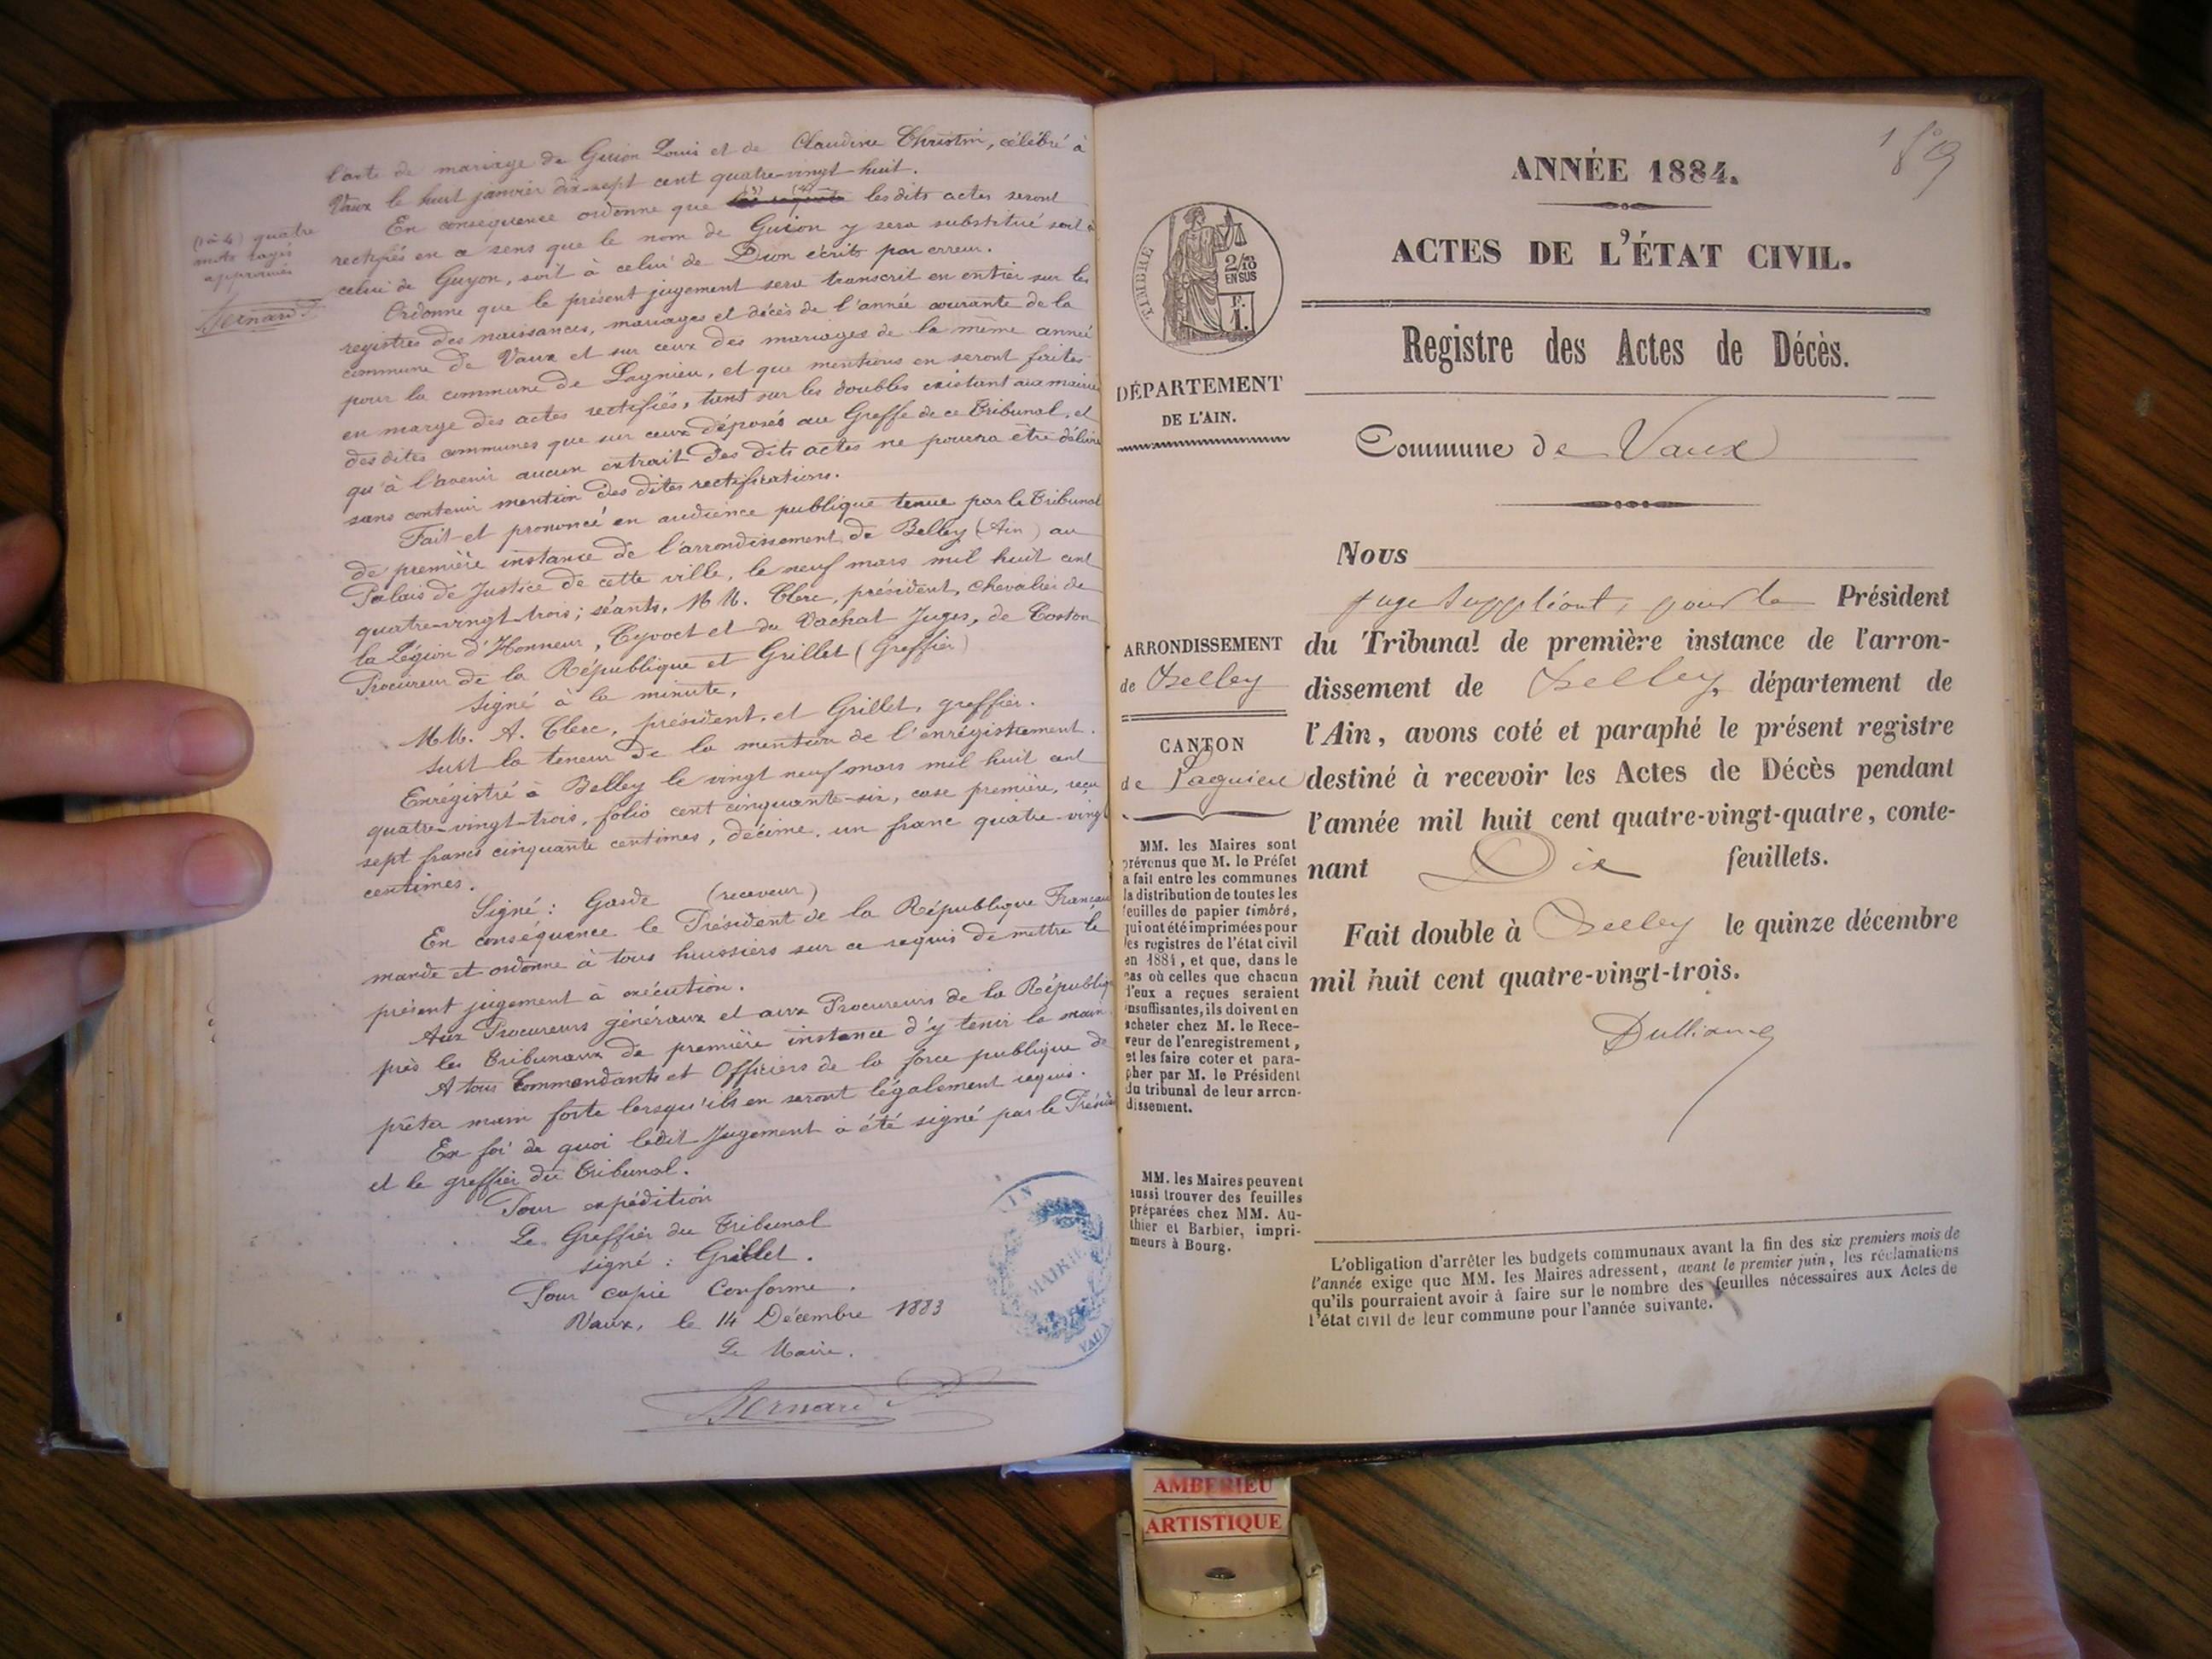 l'acte de mariage de Guion Louis et de Claudine Christin, célébré à
Vaux le huit janvier dix-sept cent quatre-vingt-huit.
En conséquence ordonne que (3) (4) lesdits actes seront
rectifiés en ce sens que le nom de Guion y sera substitué soit à
celui de Guyon, soit à celui de Dion écrits par erreur.
Ordonne que le présent jugement sera transcrit en entier sur les
registres des naissances, mariages et décès de l'année courante de la
commune de Vaux et sur ceux des mariages de la même année
pour la commune de Lagnieu, et que mentions en seront faites
en marge des actes rectifiés, tant sur les doubles existant aux mairies
desdites communes que sur ceux déposés au Greffe de ce Tribunal, et
qu'à l'avenir aucun extrait des dits actes ne pourra être délivré
sans contenir mention des dites rectifications.
Fait et prononcé en audience publique tenue par le Tribunal
de première instance de l'arrondissement de Belley (Ain) au
Palais de Justice de cette ville, le neuf mars mil huit cent
quatre-vingt-trois; séants, MM. Clerc, président, chevalier de
la Légion d'Honneur, Cyvoct et du Vachat Juges, de Coston
Procureur de la République et Grillet (Greffier)
Signé à la minute,
MM. A. Clerc, président, et Grillet, greffier.
Suit la teneur de la mention de l'enregistrement.
Enrégistré à Belley le vingt neuf mars mil huit cent
quatre-vingt-trois, folio cent cinquante-six, case première, reçu
sept francs cinquante centimes, décime, un franc quatre-vingt
centimes.
Signé: Garde (receveur)
En conséquence le Président de la République Française
mande et ordonne à tous huissiers sur ce requis de mettre le
présent jugement à exécution.
Aux Procureurs généraux et aux Procureurs de la République
près les Tribunaux de première instance d'y tenir la main.
A tous Commandants et Officiers de la force publique de
prêter main forte lorsqu'ils en seront légalement requis.
En foi de quoi ledit Jugement a été signé par le Président
et le greffier du Tribunal.
Pour expédition
Le Greffier du Tribunal
signé : Grillet.
Pour copie Conforme.
Vaux, le 14 Décembre 1883
Le Maire.
Bernard
(1 à 4) quatre
mots rayés
approuvés
Bernard
AIN
MAIRIE
VAUX
189
ANNÉE 1884.
ACTES DE L'ÉTAT CIVIL.
Registre des Actes de Décès.
Commune de Vaux
TIMBRE
2/10
EN SUS
F.
1.
DÉPARTEMENT
DE L'AIN.
ARRONDISSEMENT
de Belley
CANTON
de Lagnieu
MM. les Maires sont
prévenus que M. le Préfet
a fait entre les communes
la distribution de toutes les
feuilles de papier timbré,
qui ont été imprimées pour
les registres de l'état civil
en 1884, et que, dans le
cas où celles que chacun
d'eux a reçues seraient
insuffisantes, ils doivent en
acheter chez M. le Rece-
veur de l'enregistrement,
et les faire coter et para-
pher par M. le Président
du tribunal de leur arron-
dissement.
MM. les Maires peuvent
aussi trouver des feuilles
préparées chez MM. Au-
thier et Barbier, impri-
meurs à Bourg.
Nous
juge suppléant, pour le Président
du Tribunal de première instance de l'arron-
dissement de Belley, département de
l'Ain, avons coté et paraphé le présent registre
destiné à recevoir les Actes de Décès pendant
l'année mil huit cent quatre-vingt-quatre, conte-
nant Dix feuillets.
Fait double à Belley le quinze décembre
mil huit cent quatre-vingt-trois.
L'obligation d'arrêter les budgets communaux avant la fin des six premiers mois de
l'année exige que MM. les Maires adressent, avant le premier juin, les réclamations
qu'ils pourraient avoir à faire sur le nombre des feuilles nécessaires aux Actes de
l'état civil de leur commune pour l'année suivante.
AMBERIEU
ARTISTIQUE